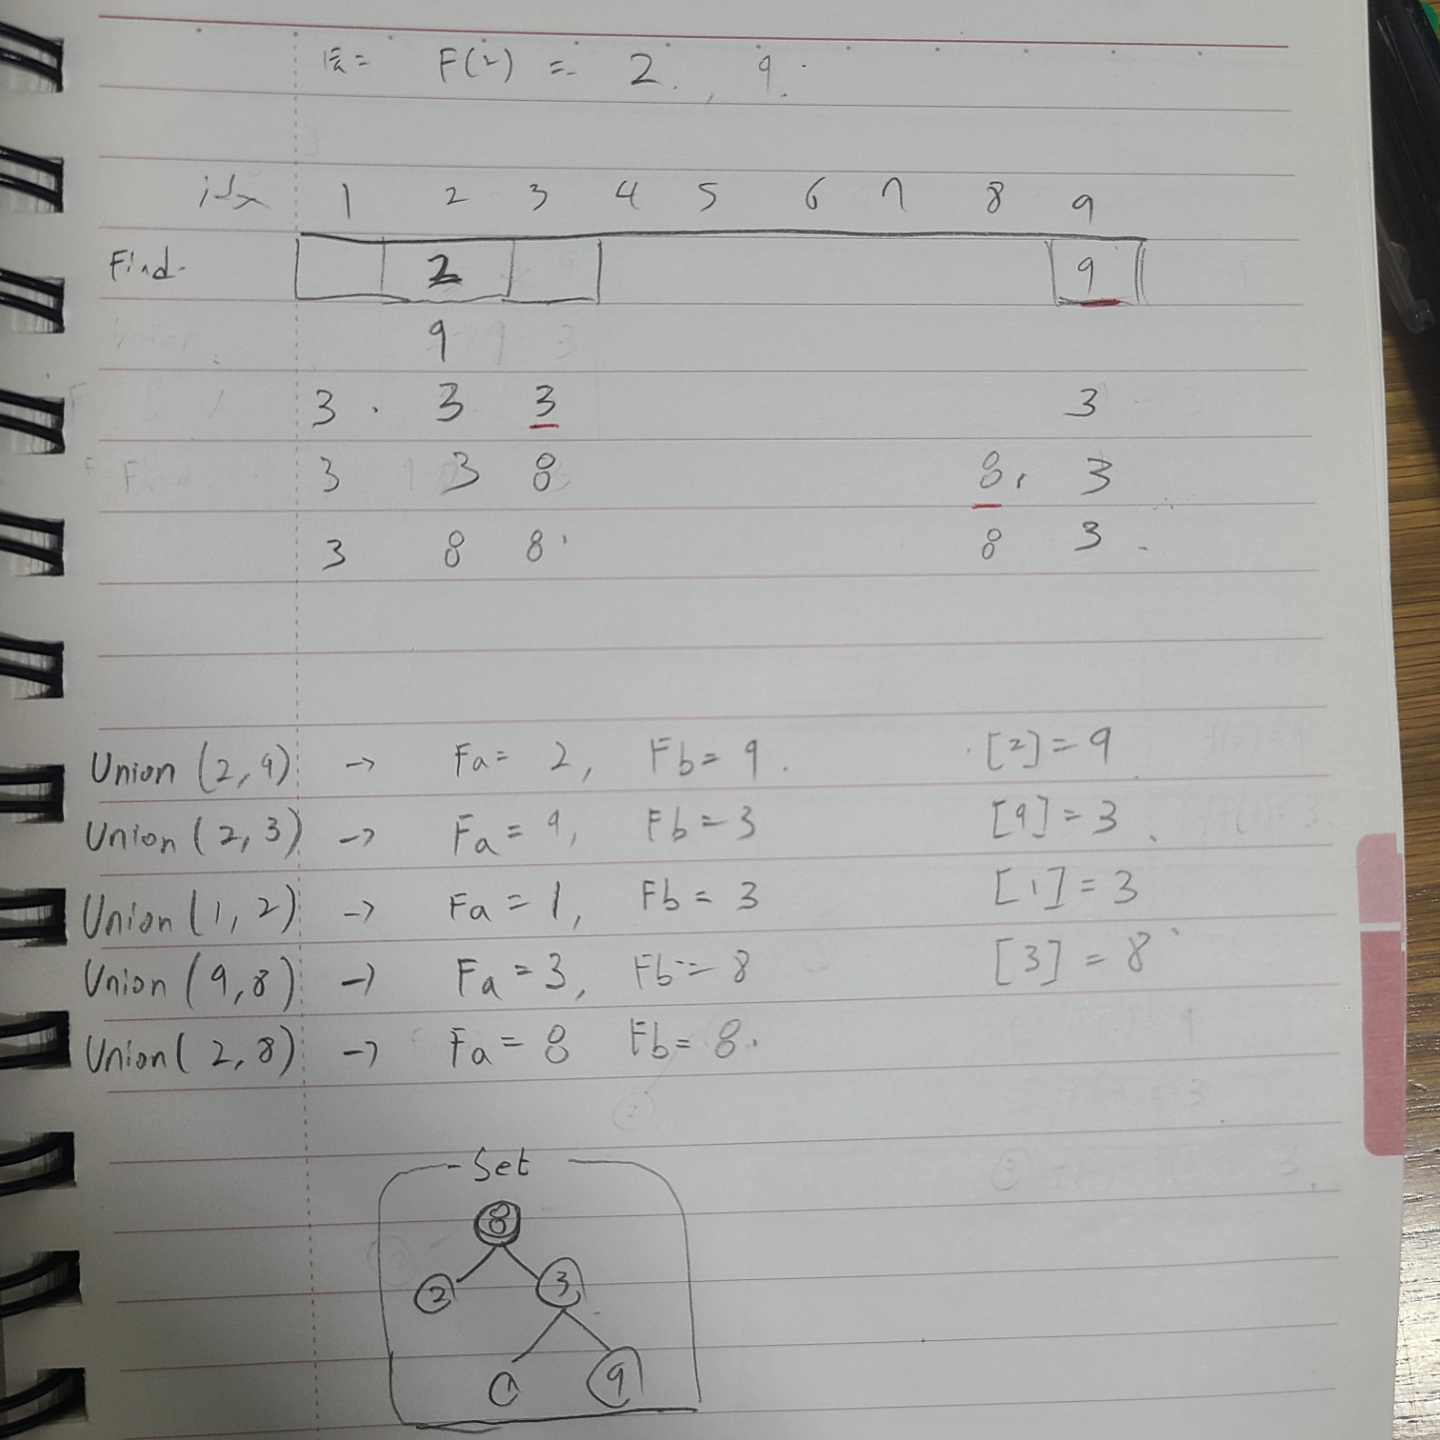 F(2) = 2. , 9.
idx 1 2 3 4 5 6 7 8 9
Find. 2 9
9
3 3 3 3
3 3 8 8 3
3 8 8 8 3
Union (2,9) → Fa= 2, Fb= 9. [2]=9
Union (2,3) → Fa = 9, Fb=3 [9]=3
Union (1,2) → Fa = 1, Fb= 3 [1]=3
Union (9,8) → Fa =3, Fb= 8 [3] = 8
Union( 2,8) → Fa = 8 Fb= 8.
Set
8
2 3
1 9